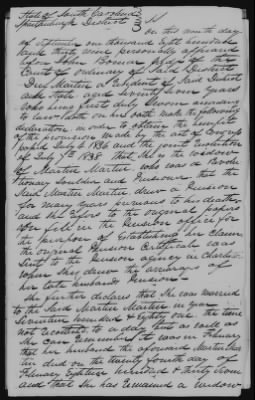 State of South Carolina
Spartanburgh District
On this ninth day
of one thousand eight hundred
and thirty nine personally appeared
before John Bomar Judge of the
Court of ordinary of Said District
Martin a resident of Said District
aged Seventy four years
who being first duly Sworn according
to law doth on her oath make the following
declaration, in order to obtain the benefit
of the provision made by the act of Congress
passed July 4 1836 and the joint Resolution
of July 7th 1838 that She is the widow
of Martin Martin who was a Revolu
tionary Souldier and that the
Said Martin Martin drew a Pension
for many years previous to his death
and She refers to the original papers
on file in the Pension office for
the purpose of Establishing her Claim
the original Pension Certificate was
Sent to the Pension agency in Charleston
when She drew the arrearages of
her late husbands Pension
She further declares that She was married
to the Said Martin Martin in year
Seventeen hundred & Eighty one the time
not recollected to a day but as well as
She can remember it was in
that her husband the aforesaid Martin Martin
died on the twenty fourth day of
Eighteen hundred & thirty
and that She has remained a widow